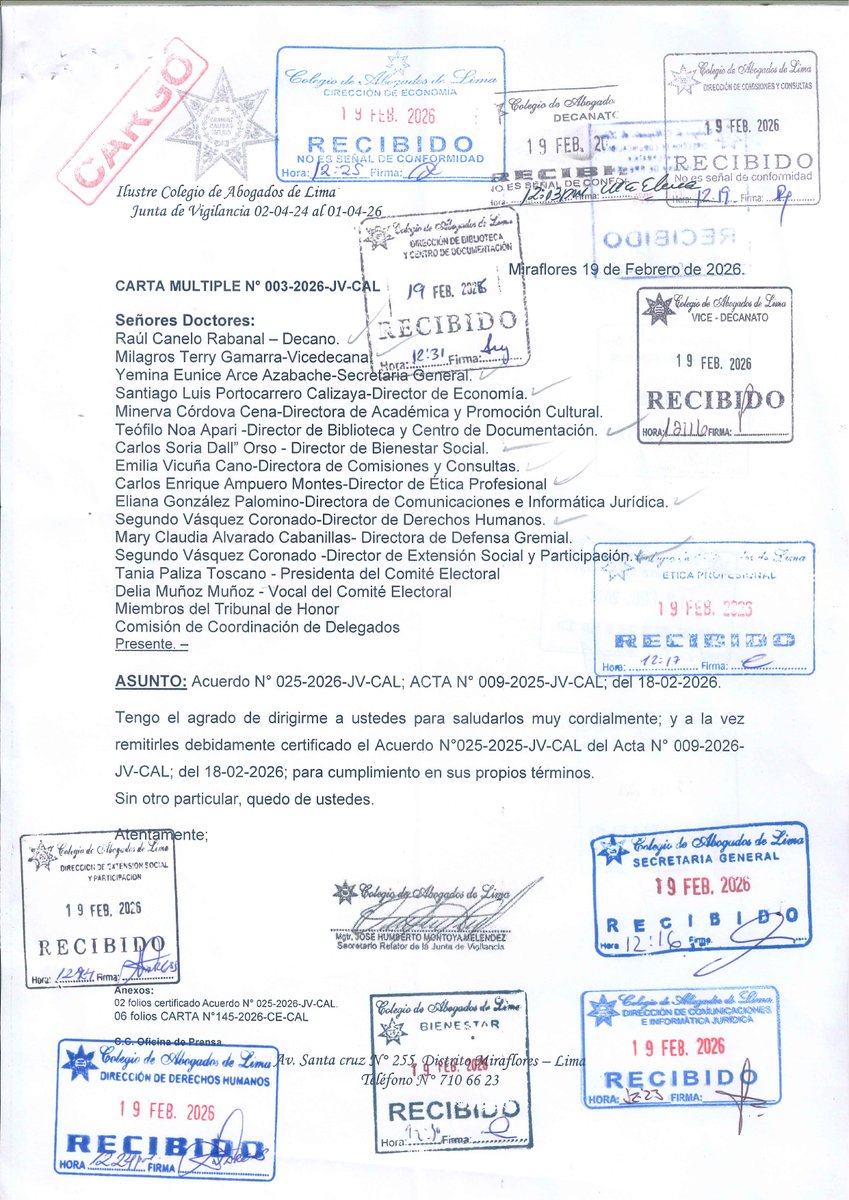 CARGO
Colegio de Abogados de Lima
DIRECCIÓN DE ECONOMIA
19 FEB. 2026
RECIBIDO
NO ES SEÑAL DE CONFORMIDAD
Hora: 12:25 Firma:
Colegio de Abogados
DECANATO
19 FEB. 20
RECIBI
NO ES SEÑAL DE CONF
Colegio de Abogados de Lima
DIRECCIÓN DE COMISIONES Y CONSULTAS
19 FEB. 2026
RECIBIDO
No es señal de conformidad
Hora: 12:19 Firma:
RECIBIDO
Ilustre Colegio de Abogados de Lima
Junta de Vigilancia 02-04-24 al 01-04-26
Colegio de Abogados de Lima
DIRECCIÓN DE BIBLIOTECA
Y CENTRO DE DOCUMENTACIÓN
19 FEB. 2026
RECIBIDO
Hora: 12:31 Firma:
Miraflores 19 de Febrero de 2026.
CARTA MULTIPLE N° 003-2026-JV-CAL
Colegio de Abogados de Lima
VICE - DECANATO
19 FEB. 2026
RECIBIDO
HORA: FIRMA:
Señores Doctores:
Raúl Canelo Rabanal – Decano.
Milagros Terry Gamarra-Vicedecana
Yemina Eunice Arce Azabache-Secretaria General.
Santiago Luis Portocarrero Calizaya-Director de Economía.
Minerva Córdova Cena-Directora de Académica y Promoción Cultural.
Teófilo Noa Apari -Director de Biblioteca y Centro de Documentación.
Carlos Soria Dall” Orso - Director de Bienestar Social.
Emilia Vicuña Cano-Directora de Comisiones y Consultas.
Carlos Enrique Ampuero Montes-Director de Ética Profesional
Eliana González Palomino-Directora de Comunicaciones e Informática Jurídica.
Segundo Vásquez Coronado-Director de Derechos Humanos.
Mary Claudia Alvarado Cabanillas- Directora de Defensa Gremial.
Segundo Vásquez Coronado -Director de Extensión Social y Participación.
Tania Paliza Toscano - Presidenta del Comité Electoral
Delia Muñoz Muñoz - Vocal del Comité Electoral
Miembros del Tribunal de Honor
Comisión de Coordinación de Delegados
Presente. –
de Abogados de Lima
ETICA PROFESIONAL
19 FEB. 2026
RECIBIDO
Hora: 12:17 Firma:
ASUNTO: Acuerdo N° 025-2026-JV-CAL; ACTA N° 009-2025-JV-CAL; del 18-02-2026.
Tengo el agrado de dirigirme a ustedes para saludarlos muy cordialmente; y a la vez
remitirles debidamente certificado el Acuerdo N°025-2025-JV-CAL del Acta N° 009-2026-
JV-CAL; del 18-02-2026; para cumplimiento en sus propios términos.
Sin otro particular, quedo de ustedes.
Atentamente;
Colegio de Abogados de Lima
DIRECCIÓN DE EXTENSIÓN SOCIAL
Y PARTICIPACIÓN
19 FEB. 2026
RECIBIDO
Hora: Firma:
Colegio de Abogados de Lima
Mgtr. JOSÉ HUMBERTO MONTOYA MELENDEZ
Secretario Relator de la Junta de Vigilancia
Colegio de Abogados de Lima
SECRETARIA GENERAL
19 FEB. 2026
RECIBIDO
Hora 12:16 Firma
Anexos:
02 folios certificado Acuerdo N° 025-2026-JV-CAL.
06 folios CARTA N°145-2026-CE-CAL
C.C. Oficina de Prensa
Colegio de Abogados de Lima
DIRECCIÓN DE DERECHOS HUMANOS
19 FEB. 2026
RECIBIDO
HORA FIRMA
Colegio de Abogados de Lima
BIENESTAR
19 FEB. 2026
RECIBIDO
Hora: Firma:
Colegio de Abogados de Lima
DIRECCIÓN DE COMUNICACIONES
E INFORMÁTICA JURÍDICA
19 FEB. 2026
RECIBIDO
HORA: 12:23 FIRMA:
Av. Santa cruz N° 255, Distrito Miraflores – Lima
Teléfono N° 710 66 23